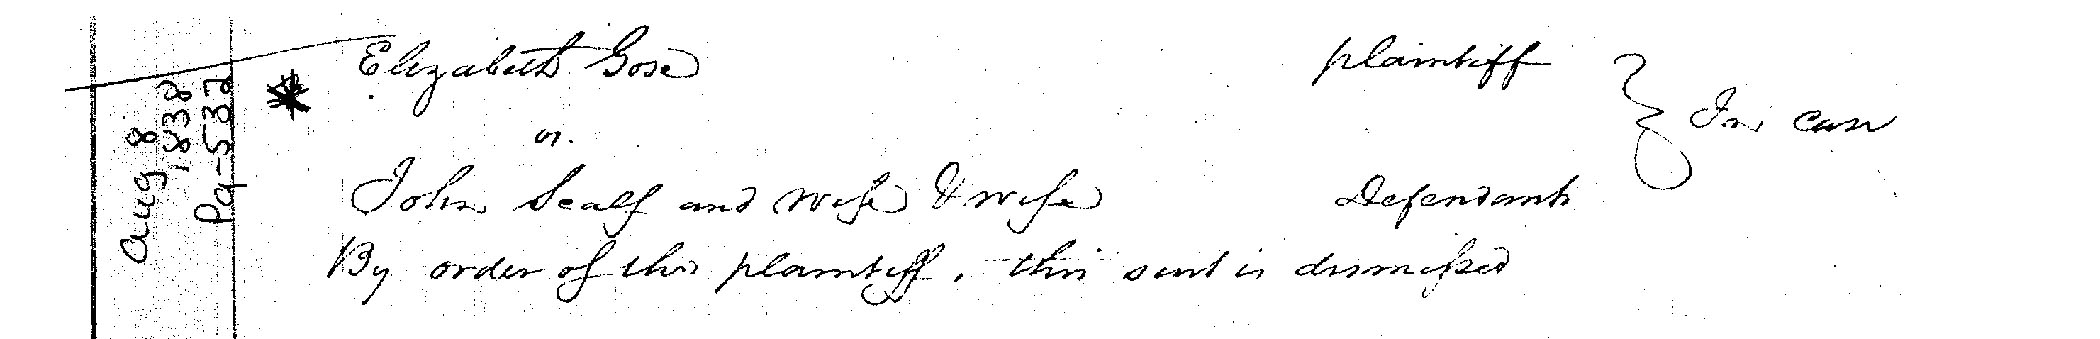 Aug 8
1838
Pg-532
Elizabeth Gose plaintiff
vs.
In case
John Scalf and wife & wife Defendants
By order of the plaintiff, this suit is dismissed